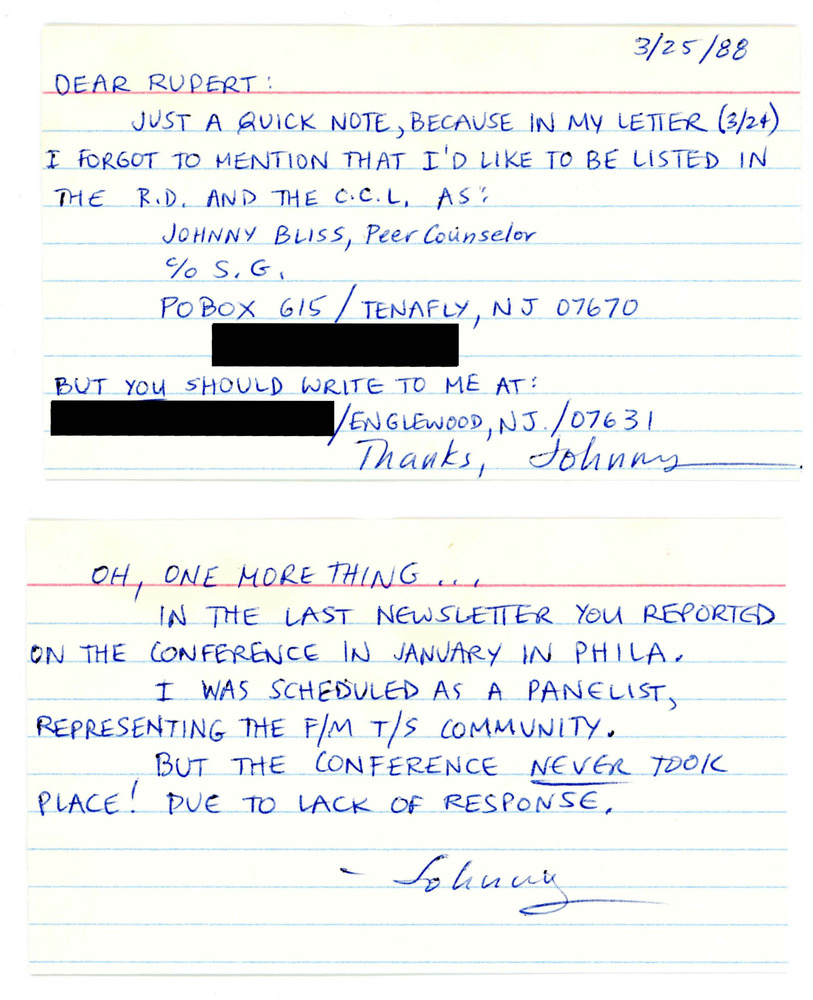 3/25/88
DEAR RUPERT:
JUST A QUICK NOTE, BECAUSE IN MY LETTER (3/24)
I FORGOT TO MENTION THAT I'D LIKE TO BE LISTED IN
THE R.D. AND THE C.C.L. AS:
JOHNNY BLISS, Peer Counselor
c/o S.G.
PO BOX 615 / TENAFLY, NJ 07670
BUT YOU SHOULD WRITE TO ME AT:
/ENGLEWOOD, NJ./07631
Thanks, Johnny
OH, ONE MORE THING...
IN THE LAST NEWSLETTER YOU REPORTED
ON THE CONFERENCE IN JANUARY IN PHILA.
I WAS SCHEDULED AS A PANELIST,
REPRESENTING THE F/M T/S COMMUNITY.
BUT THE CONFERENCE NEVER TOOK
PLACE! DUE TO LACK OF RESPONSE.
- Johnny